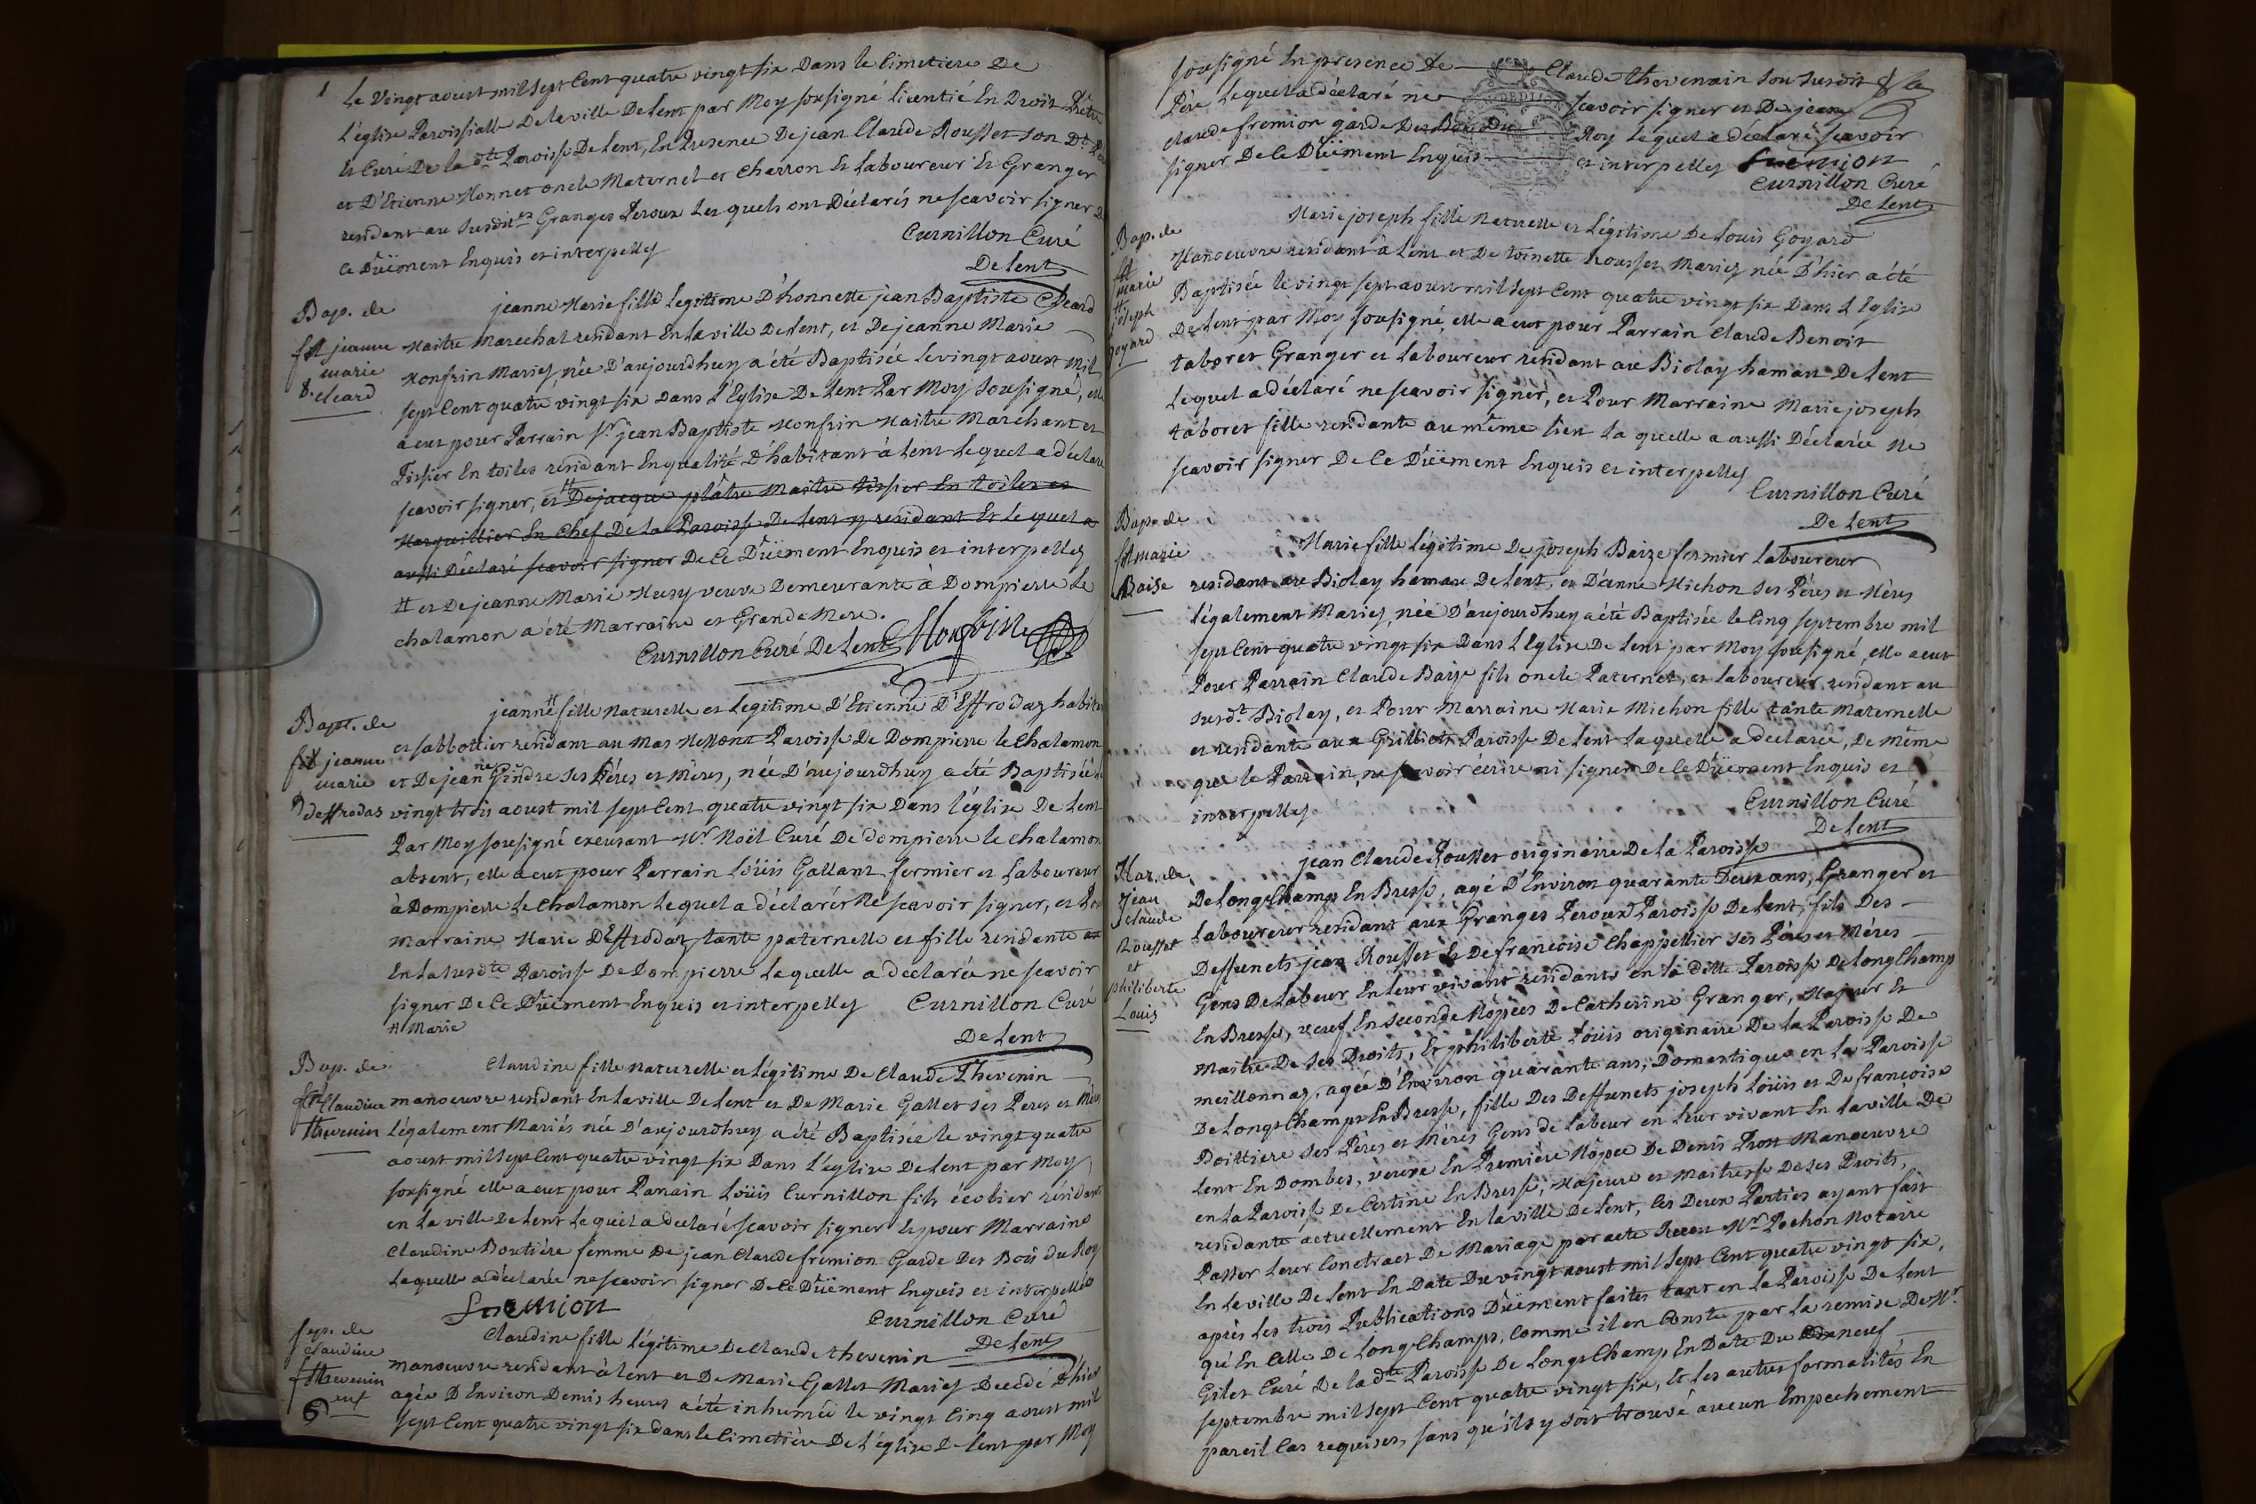 Le Vingt aoust mil sept Cent quatre vingt six Dans le Cimetiere De
L'église Paroissialle De la ville De Lent par Moy soussigné licentié En Droit Prêtre
Et Curé De la dte Paroisse De Lent, En Presence De jean Claude Rousset son Dt
et D'Etienne Monnet oncle Maternel et Charron Et Laboureur Et Granger
residant au susdit Granges Peroux Lesquels ont Déclarés ne scavoir signer De
Ce Düement Enquis et interpellez
Curnillon Curé
De Lent
Bap. de
jeanne
marie
Cleard
jeanne Marie fille Legitime D'honnette jean Baptiste Cleard
Maitre Marechal residant En la ville De Lent, et De jeanne Marie
Monfrin Mariez, née D'aujourdhuy a été Baptisée le vingt aoust Mil
sept Cent quatre vingt six Dans L'Eglise De Lent Par Moy soussigné, elle
a eut pour Parrain Sr jean Baptiste Monfrin Maitre Marchant et
Tissier En toiles residant En qualité D'habitant à Lent Lequel a déclaré
scavoir signer, et De jacque plâtre Maitre tissier En toiles et
Marguillier En Chef De La Paroisse De Lent y residant Et Lequel a
aussi Déclaré scavoir signer De Ce Düement Enquis et interpellez
# et De jeanne Marie veuve Demeurante à Dompierre Le
chalamon a été Marraine et Grande Mere.
Curnillon Curé De Lent Monfrin
Bapt. de
jeanne
marie
deffrodas
jeanne # fille Naturelle et Legitime D'Etienne D'Effroday habitant
et sabbottier residant au Mas Paroisse De Dompierre le Chalamon
et De jeanne Gindre ses Péres et Mères, née D'aujourdhuy a été Baptisée
vingt trois aoust mil sept Cent quatre vingt six Dans l'église De Lent
Par Moy soussigné excusant Mr Noël Curé De dompierre le chalamon
absent, elle a eut pour Parrain Loüis Gallant fermier et Laboureur
à Dompierre Le Chalamon Lequel a déclarér Ne scavoir signer, et Pour
marraine Marie D'Effroday tante paternelle et fille residante
En La susdte Paroisse De Dompierre Laquelle a déclarée ne scavoir
signer De Ce Düement Enquis et interpellez Curnillon Curé
# Marie
De Lent
Bap. de
Claudine
thevenin
Claudine fille naturelle et Légitime De Claude Thevenin
manoeuvre residant En la ville De Lent et De Marie Gallet ses Peres et Mères
Légalement Mariés née D'aujourdhuy a été Baptisée le vingt quatre
aoust mil sept Cent quatre vingt six Dans L'eglise De Lent par Moy
soussigné elle a eut pour Parrain Loüis Curnillon fils écolier residant
en La ville De Lent Lequel a declaré scavoir signer Et pour Marraine
Claudine Boutière femme De jean Claude fremion Garde Des Bois du Roy
Laquelle a déclarée ne scavoir signer De Ce Düement Enquis et interpellée
fremion
Curnillon Curé
De Lent
Sep. de
claudine
thevenin
Claudine fille légitime De Claude thevenin
manoeuvre residant à Lent et De Marie Gallet Mariez Decedé D'hier
agée D'Environ Demis heure a été inhumée le vingt Cinq aoust mil
sept Cent quatre vingt six dans le Cimetière De L'église De Lent par Moy
soussigné En presence De Claude thevenain son susdit
Père Lequel a déclaré ne scavoir signer et De jean
claude fremion garde Des Bois Du Roy Lequel a déclaré scavoir
signer De Ce Düement Enquis et interpellez fremion
Curnillon Curé
De Lent
Bap. de
marie
joseph
goyard
Marie joseph fille Naturelle et Légitime De Louis Goyard
Manoeuvre residant à Lent et De toinette Rousset Mariez née D'hier a été
Baptisée le vingt sept aoust mil sept Cent quatre vingt six Dans L'Eglise
De Lent par Moy soussigné, elle a eut pour Parrain Claude Benoit
taboret Granger et Laboureur residant au Biolay hamau De Lent
Lequel a déclaré ne scavoir signer, et Pour Marraine Marie joseph
taboret fille residante au même lieu La quelle a aussi Déclarée Ne
scavoir signer De Ce Düement Enquis et interpellez
Curnillon Curé
De Lent
Bap. de
marie
Baise
Marie fille légitime De joseph Baize fermier Laboureur
residant au Biolay hamau De Lent, et D'anne Michon ses Péres et Mères
légalement Mariez, née D'aujourdhuy a été Baptisée le Cinq septembre mil
sept Cent quatre vingt six Dans L'Eglise De Lent par Moy soussigné, elle a eut
Pour Parrain Claude Baize fils oncle Paternel, et Laboureur residant au
susdt Biolay, et Pour Marraine Marie Michon fille tante Maternelle
et residante aux Paroisse De Lent La quelle a declarée, De même
que le Parrain, ne scavoir écrire ni signer De Ce Düement Enquis et
interpellez
Curnillon Curé
De Lent
Mar. de
jean
claude
Rousset
et
philiberte
Louis
jean Claude Rousset originaire De La Paroisse
De Longchamps En Bresse, agé D'Environ quarante Deux ans, Granger et
Laboureur residant aux Granges Peroux Paroisse De Lent, fils Des
Deffunets jean Rousset Et De francoise Chappellier ses Péres et Mères
Gens De Labeur En leur vivant residants en la ditte Paroisse De Longchamp
En Bresse, veuf En seconde Nôpces De Catherine Granger, Majeur Et
Maitre De ses Droits, Et philiberte Loüis originaire De La Paroisse De
meillonnaz, agée D'Environ quarante ans, Domestique en La Paroisse
De Longchamps En Bresse, fille Des Deffunets joseph Loüis et De francoise
Boittiere ses Péres et Mères Gens de Labeur en Leur vivant En La ville De
Lent En Dombes, veuve En Première Nôpce De Denis Manoeuvre
en La Paroisse De Certine En Bresse, Majeure et Maitresse De ses Droits,
residante actuellement En La ville De Lent, Les Deux Parties ayant fait
Passer Leur Conctract De Mariage par acte Reçu Mr Pochon Notaire
En La ville De Lent En Date Du vingt aoust mil sept Cent quatre vingt six,
après Les trois Publications Düement faites tant en La Paroisse De Lent
qu'En Celle De LongChamps, Comme il en Conste par La remise De Mr
Gilet Curé De la dte Paroisse De LongChamp En Date Du neuf
septembre mil sept Cent quatre vingt six, Et Les autres formalités En
pareil Cas requises, sans qu'il s'y soit trouvé aucun Empechement